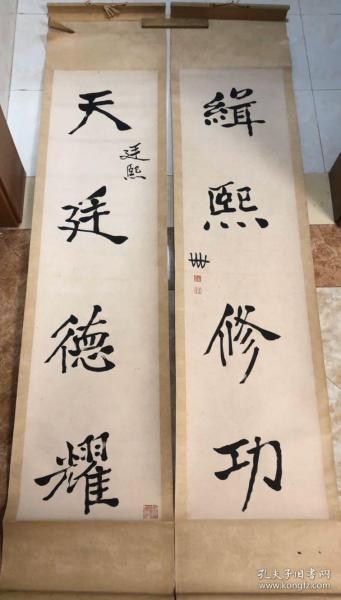 緝熙修功
天廷德耀
廷熙
孔夫子旧书网
www.kongfz.com